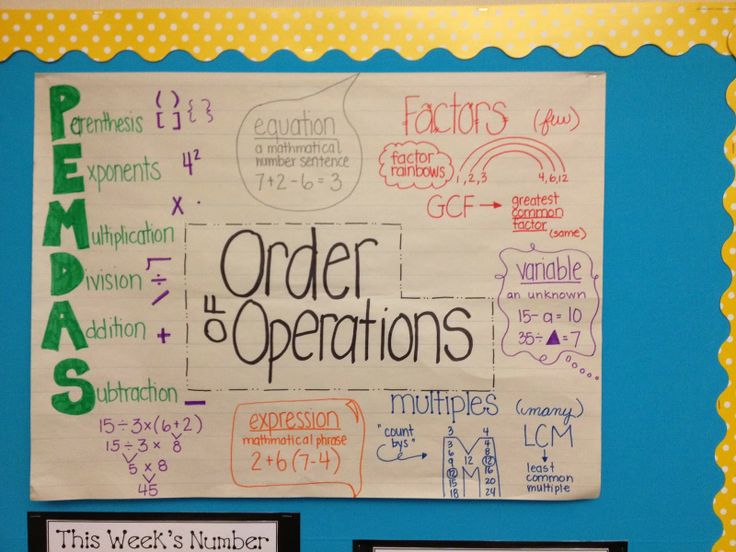 PEMDAS
Parenthesis ( ) { } [ ]
Exponents 4²
Multiplication × ·
Division ÷ /
Addition +
Subtraction −
15÷3×(6+2)
15÷3× 8
5 × 8
45
equation
a mathmatical
number sentence
7+2-6=3
Order
OF Operations
expression
mathmatical phrase
2+6(7-4)
Factors (few)
factor
rainbows
1,2,3 4,6,12
GCF → greatest
common
factor
(same)
variable
an unknown
15-a=10
35÷▲=7
multiples (many)
"count
bys"
3 4
3 4
6 8
9 12 12
12 16
15 20
18 24
LCM
least
common
multiple
This Week's Number